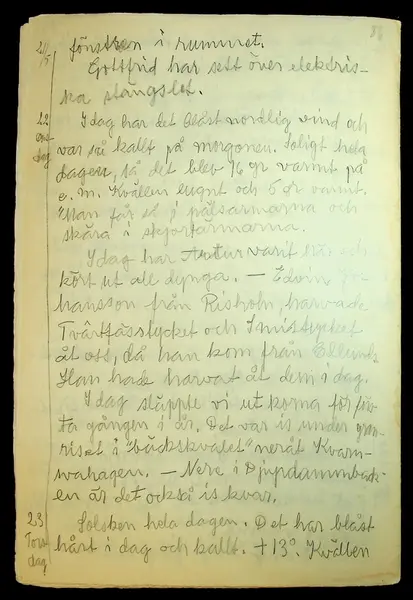 21/5 fönstren i rummet.
Gottfrid har sett över elektris-
ka stängslet.
22 ons dag Idag har det blåst nordlig vind och
var så kallt på morgonen. Soligt hela
dagen, så det blev 16 gr varmt på
e.m. Kvällen lugnt och 5 gr varmt.
"Man får så i pälsarmarna och
skära i skjortärmarna.
Idag har Artur varit här och
kört ut all dynga. — Edvin Jo-
hansson från Risholn, harvade
Tvärtfässtycket och Smistycket
åt oss, då han kom från Edlunds
Han hade harvat åt dem i dag.
I dag släppte vi ut korna för förs-
ta gången i år. Det var is under gran-
riset i "bäckskvalet" neråt Kvarn-
wahagen. — Nere i Djupdammback-
en är det också is kvar.
23 Tors dag Solsken hela dagen. Det har blåst
hårt i dag och kallt. +13°. Kvällen